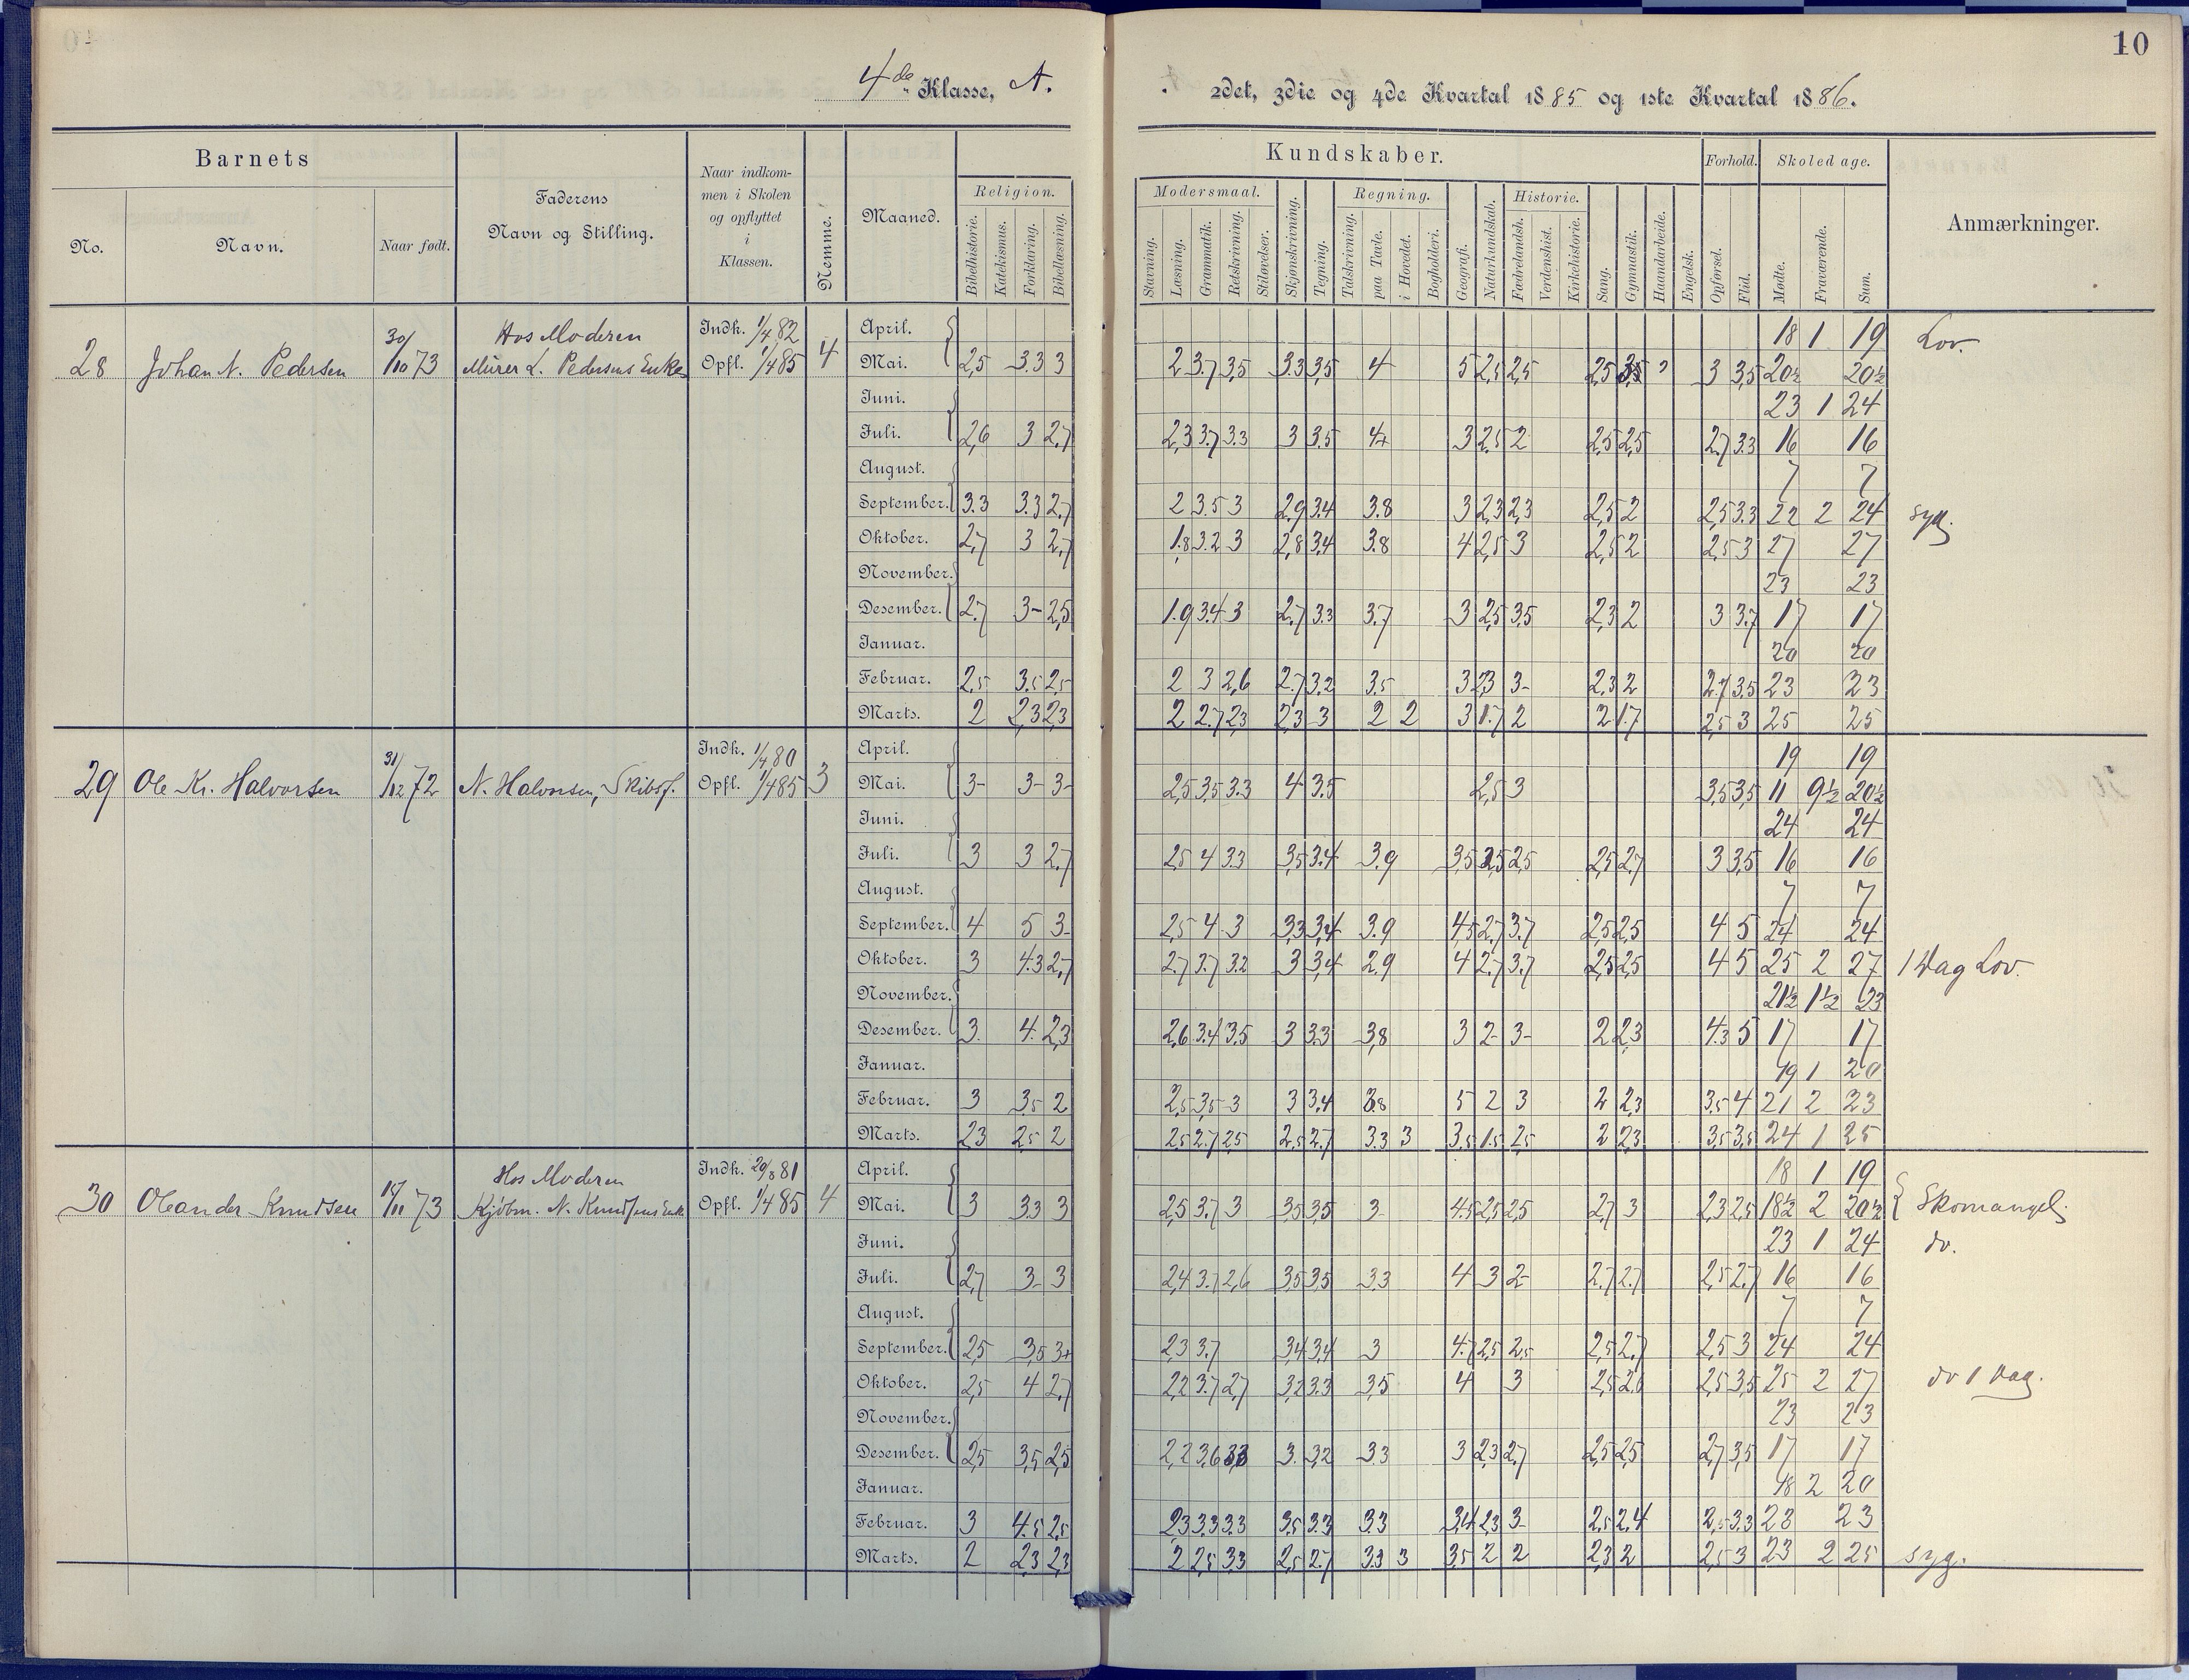 10
4de Klasse, A.
2det, 3die og 4de Kvartal 1885 og 1ste Kvartal 1886.
Barnets
No.
Navn.
Naar født.
Faderens
Navn og Stilling.
Naar indkom-
men i Skolen
og opflyttet
i
Klassen.
Nemme.
Maaned.
Religion.
Bibelhistorie.
Katekismus.
Forklaring.
Bibellæsning.
Kundskaber.
Modersmaal.
Stavning.
Læsning.
Grammatik.
Retskrivning.
Stiløvelser.
Skjønskrivning.
Tegning.
Regning.
Talskrivning.
paa Tavle.
i Hovedet.
Bogholderi.
Geografi.
Naturkundskab.
Historie.
Fædrelandsh.
Verdenshist.
Kirkehistorie.
Sang.
Gymnastik.
Haandarbeide.
Engelsk.
Forhold.
Opførsel.
Flid.
Skoledage.
Mødte.
Fraværende.
Sum.
Anmærkninger.
28 Johan N. Pedersen 30/10 73 Hos Moderen Murer L. Pedersens Enke Indk. 1/4 82 Opfl. 1/4 85 4
April. 18 1 19 Lov.
Mai. 2,5 3.3 3 2 3.7 3,5 3.3 3,5 4 5 2,5 2,5 2,5 3,5 3 3,5 20½ 20½
Juni. 23 1 24
Juli. 2,6 3 2,7 2,3 3.7 3.3 3 3.5 4+ 3 2.5 2 2,5 2,5 2.7 3.3 16 16
August. 7 7
September. 3.3 3.3 2.7 2 3.5 3 2.9 3.4 3.8 3 2,3 2,3 2,5 2 2,5 3.3 22 2 24 syg.
Oktober. 2,7 3 2,7 1.8 3.2 3 2,8 3,4 3.8 4 2,5 3 2,5 2 2,5 3 27 27
November. 23 23
Desember. 2.7 3- 2,5 1.9 3.4 3 2.7 3.3 3.7 3 2,5 3.5 2,3 2 3 3.7 17 17
Januar. 20 20
Februar. 2.5 3.5 2.5 2 3 2,6 2.7 3.2 3.5 3 2,3 3- 2,3 2 2.7 3.5 23 23
Marts. 2 2,3 2,3 2 2.7 2,3 2,3 3 2 2 3 1.7 2 2 1.7 2,5 3 25 25
29 Ole Kr. Halvorsen 31/12 72 N. Halvorsen, Skibsf. Indk. 1/4 80 Opfl. 1/4 85 3
April. 19 19
Mai. 3- 3- 3- 2,5 3.5 3.3 4 3.5 2,5 3 3,5 3,5 11 9½ 20½
Juni. 24 24
Juli. 3 3 2.7 2.5 4 3.3 3,5 3.4 3.9 3,5 2,5 2,5 2,5 2,7 3 3,5 16 16
August. 7 7
September. 4 5 3- 2,5 4 3 3,3 3,4 3.9 4,5 2.7 3.7 2,5 2,5 4 5 24 24
Oktober. 3 4.3 2,7 2.7 3.7 3.2 3 3,4 2.9 4 2.7 3.7 2,5 2,5 4 5 25 2 27 1 Dag Lov.
November. 21½ 1½ 23
Desember. 3. 4. 2,3 2,6 3.4 3.5 3 3.3 3,8 3 2- 3- 2 2,3 4.3 5 17 17
Januar. 19 1 20
Februar. 3 3.5 2 2,5 3,5 3 3 3,4 3.8 5 2 3 2 2,3 3.5 4 21 2 23
Marts. 2,3 2,5 2 2,5 2.7 2,5 2,5 2.7 3.3 3 3.5 1.5 2,5 2 2,3 3,5 3,5 24 1 25
30 Oleander Knudsen 15/11 73 Hos Moderen Kjøbm. N. Knudsens Enke Indk. 20/8 81 Opfl. 1/4 85 4
April. 18 1 19
Mai. 3 3.3 3 2,5 3.7 3 3,5 3,5 3 4.5 2,5 2,5 2,7 3 2,3 2,5 18½ 2 20½ Skomangel.
Juni. 23 1 24 do.
Juli. 2,7 3- 3 2,4 3.7 2,6 3,5 3,5 3.3 4 3 2- 2.7 2.7 2,5 2.7 16 16
August. 7 7
September. 2,5 3,5 3+ 2,3 3.7 3,4 3,4 3 4.7 2,5 2,5 2,5 2,7 2,5 3 24 24
Oktober. 2,5 4 2,7 2,2 3.7 2,7 3,2 3.3 3,5 4 3 2,5 2,6 2,5 3,5 25 2 27 do 1 Dag.
November. 23 23
Desember. 2,5 3,5 2,5 2,2 3,6 3,3 3. 3,2 3.3 3 2,3 2,7 2,5 2,5 2,7 3,5 17 17
Januar. 18 2 20
Februar. 3 4.5 2,5 2,3 3.3 3.3 3,5 3.3 3.3 3,4 2,3 3- 2,5 2,4 2,5 3.3 23 23
Marts. 2 2,3 2,3 2 2,5 3.3 2,5 2.7 3.3 3 3,5 2 2 2,3 2 2,5 3 23 2 25 syg.